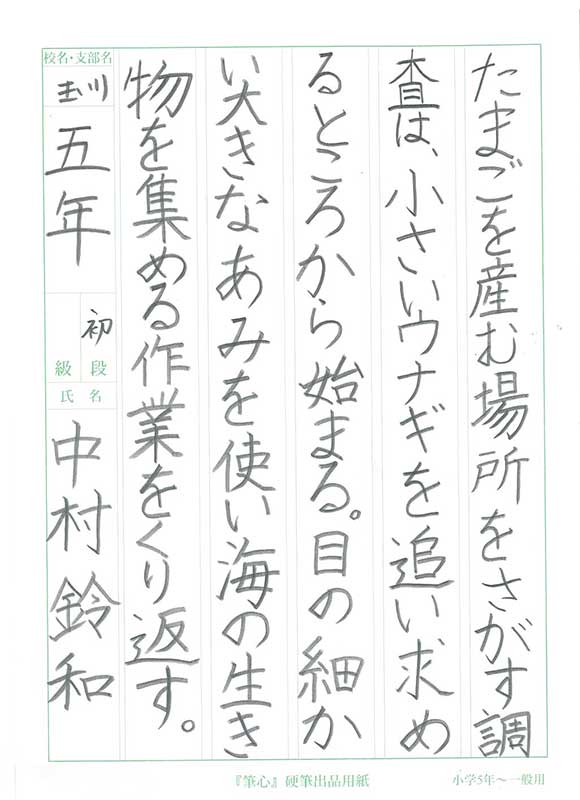 たまごを産む場所をさがす調
査は、小さいウナギを追い求め
るところから始まる。目の細か
い大きなあみを使い海の生き
物を集める作業をくり返す。
校名・支部名
玉川
五年
初
級 段
氏 名
中村鈴和
『筆心』硬筆出品用紙
小学5年～一般用